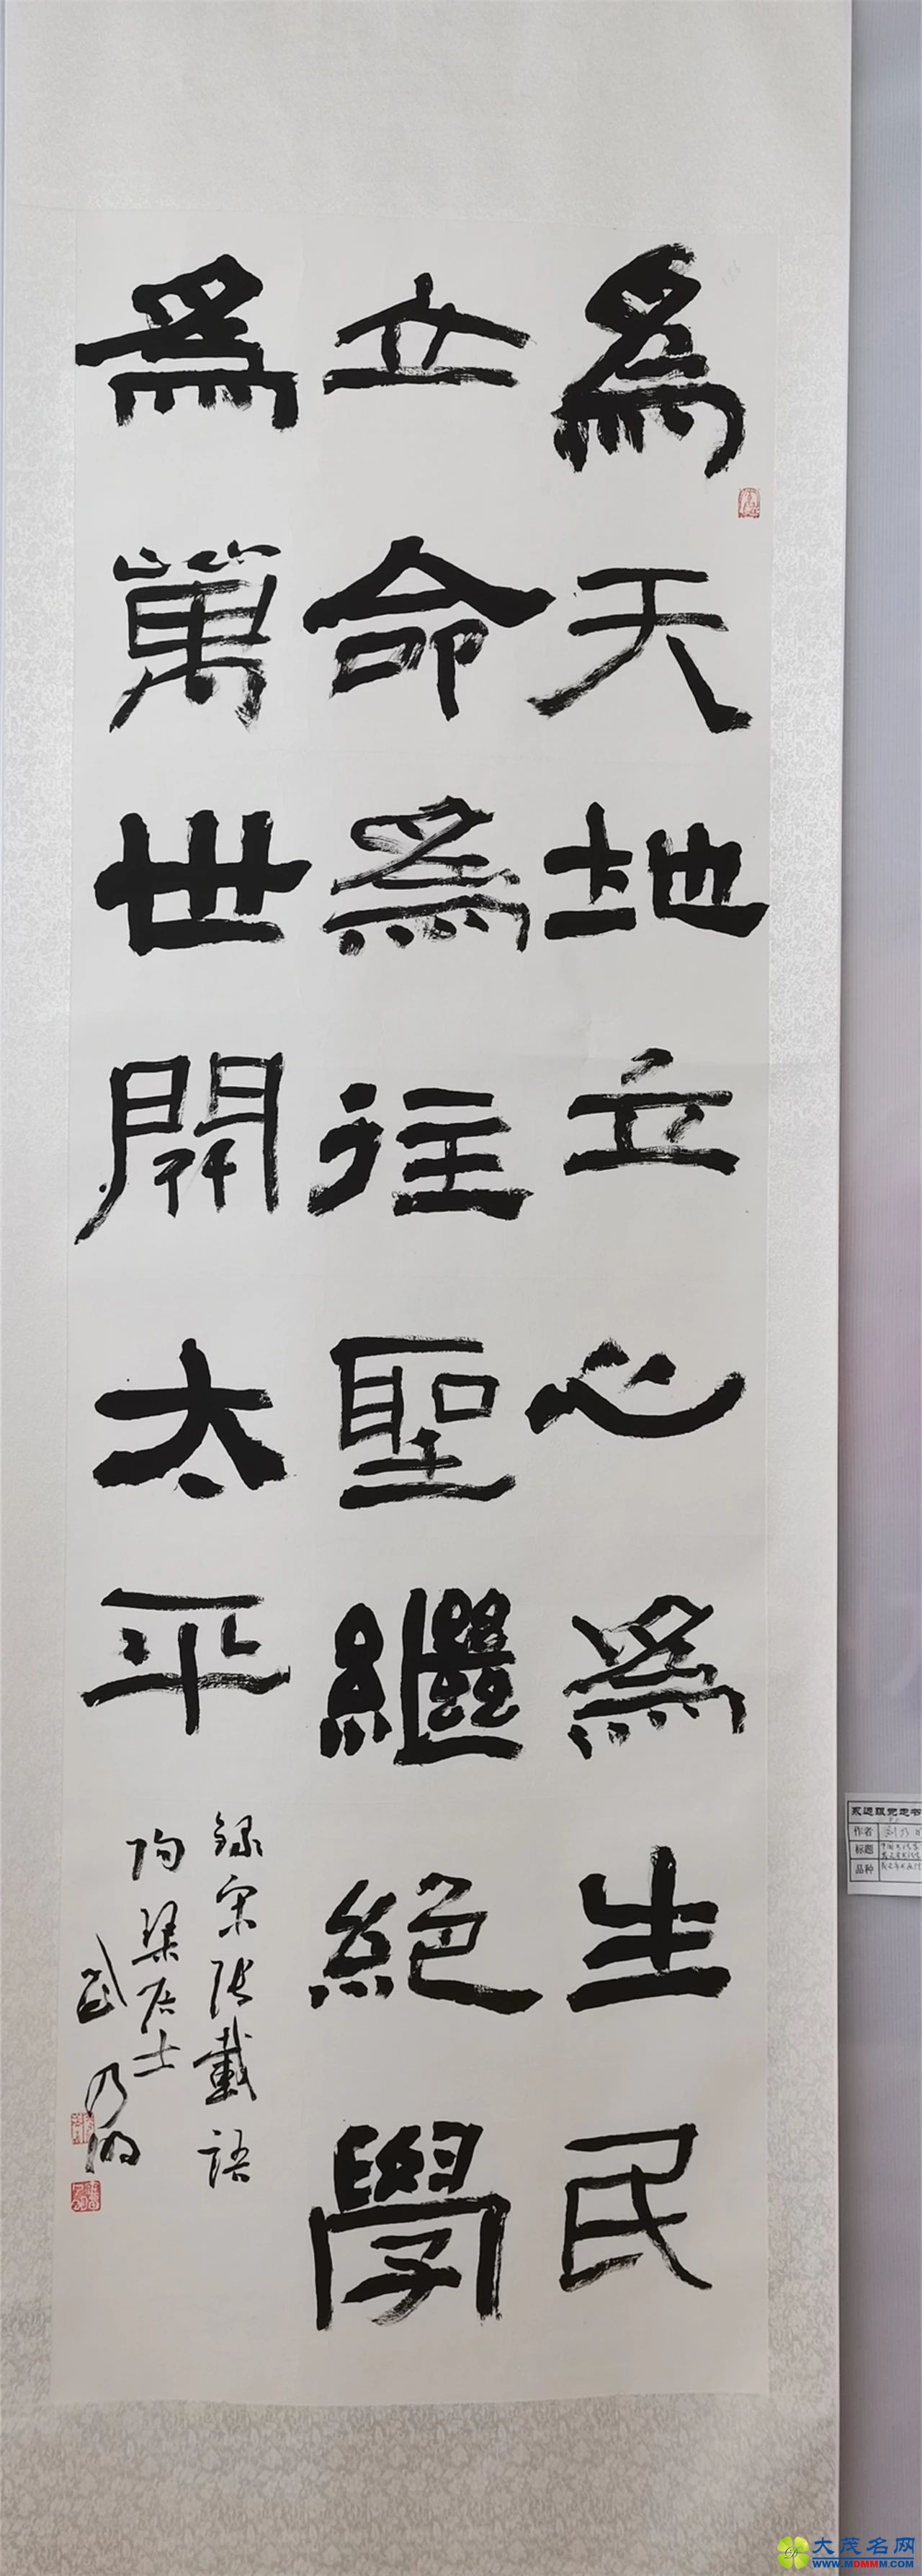 為天地立心為生民
立命為往聖繼絶學
為萬世開太平
錄宋張載語
陶渠居士
乃
作者
标题
品种
大茂名网
WWW.MDMMM.COM